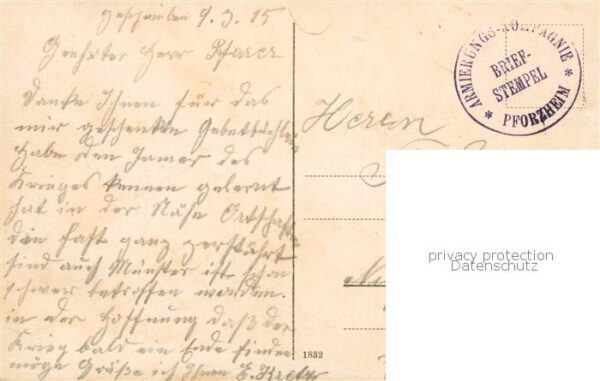 geschrieben 9.3.15
Geehrter Herr Pfarer
Danke Ihnen für das
mir geschenkte Gebetbüchlein
habe den Jamer des
Krieges kennen gelernt
hat in der Nähe Ortschaften
die fast ganz zerstöhrt
sind auch Münster ist schon
schwer betroffen worden.
in der Hoffnung daß der
Krieg bald ein Ende finden
möge Grüße ich Ihnen E. Kretz
Herrn
ARMIERUNGS-KOMPAGNIE
BRIEF-
STEMPEL
* PFORZHEIM *
privacy protection
Datenschutz
1832